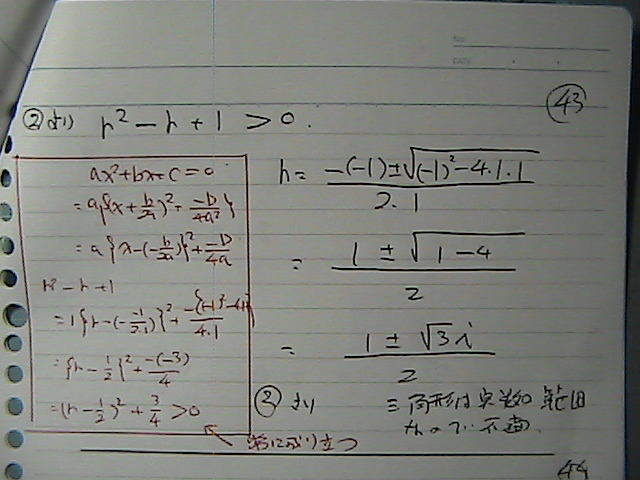 ㊸
②より r² − r + 1 > 0.
ax²+bx+c=0
= a{(x+b/2a)²+ −D/4a²}
= a{x−(−b/2a)}²+ −D/4a
r²−r+1
= 1{r−(−−1/2·1)}²+ −{(−1)²−4·1}/4·1
= {r−1/2}²+ −(−3)/4
= (r−1/2)²+3/4 >0
常に成り立つ
r = −(−1)±√(−1)²−4·1·1 / 2·1
= 1 ± √1−4 / 2
= 1 ± √3 i / 2
② より
三角形は実数の範囲
なので不適.
44